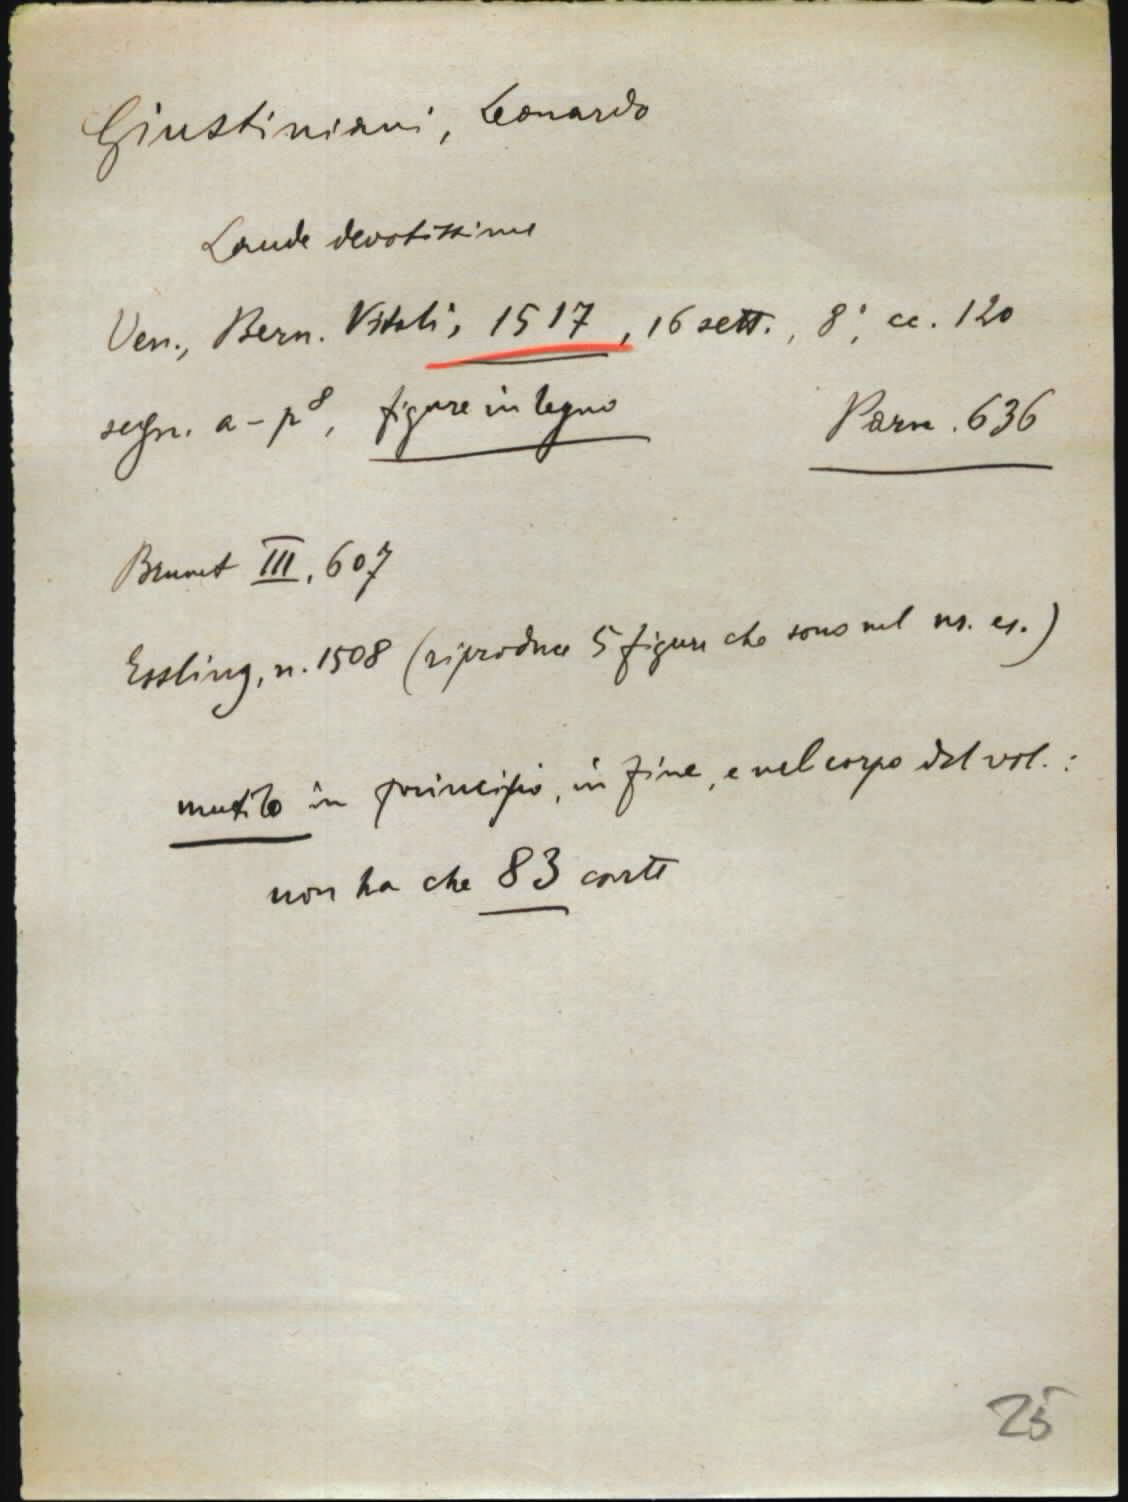 Giustiniani, Leonardo
Laude devotissime
Ven., Bern. Vitali, 1517, 16 sett., 8°, cc. 120
segn. a-p⁸, figure in legno
Parn. 636
Brunet III, 607
Essling, n. 1508 (riproduce 5 figure che sono nel ns. es.)
mutilo in principio, in fine, e nel corpo del vol.:
non ha che 83 carte
25